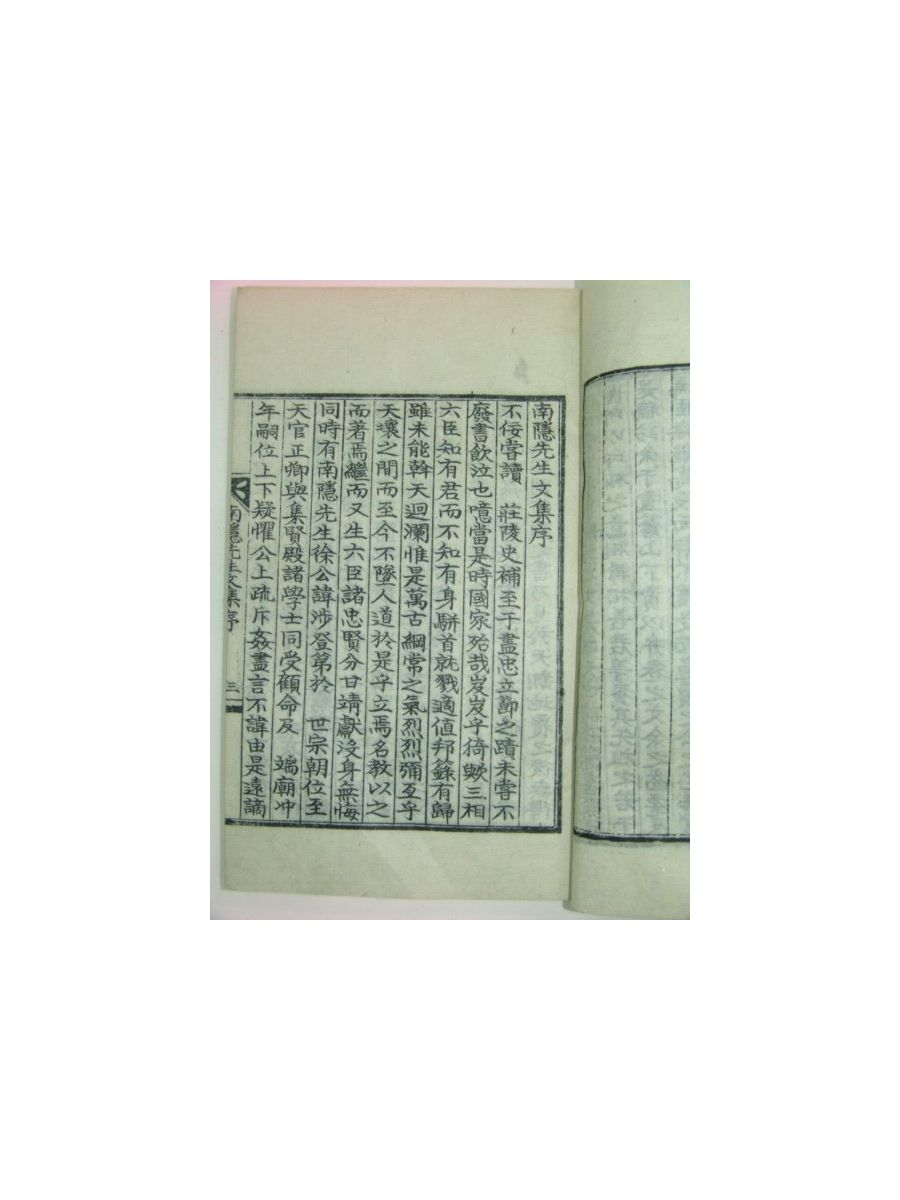 南隱先生文集序
不佞嘗讀 莊陵史補至于盡忠立節之蹟未嘗不
廢書飮泣也噫當是時國家殆哉岌岌乎猗歟三相
六臣知有君而不知有身騈首就戮適値邦籙有歸
雖未能斡天迴瀾惟是萬古綱常之氣烈烈彌亙乎
天壤之間而至今不墜人道於是乎立焉名敎以之
而著焉繼而又生六臣諸忠賢分甘靖獻沒身無悔
同時有南隱先生徐公諱涉登第於 世宗朝位至
天官正卿與集賢殿諸學士同受顧命及 端廟冲
年嗣位上下疑懼公上疏斥姦盡言不諱由是遠謫
南隱先生文集序 三